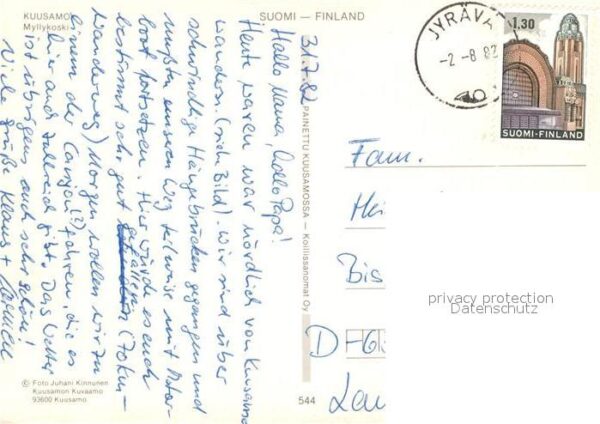 KUUSAMO
Myllykoski
SUOMI — FINLAND
JYRÄVÄ
-2.-8.82
1,30
SUOMI-FINLAND
31.7.82
Hallo Mama, hallo Papa!
Heute waren wir nördlich von Kuusamo
wandern (sieh Bild). Wir sind über
schwindlige Hängebrücken gegangen und
mußten unseren Weg teilweise mit Motor-
boot fortsetzen. Hier würde es euch
bestimmt sehr gut gefallen (
Wanderweg) Morgen wollen wir zu
einem der Canyon(?) fahren, die es
hier auch zahlreich gibt. Das Wetter
ist übrigens auch sehr schön!
Viele Grüße Klaus +
PAINETTU KUUSAMOSSA — Koillissanomat Oy
544
© Foto Juhani Kinnunen
Kuusamon Kuvaamo
93600 Kuusamo
Fam.
Hei
Bis
D-
Lau
privacy protection
Datenschutz